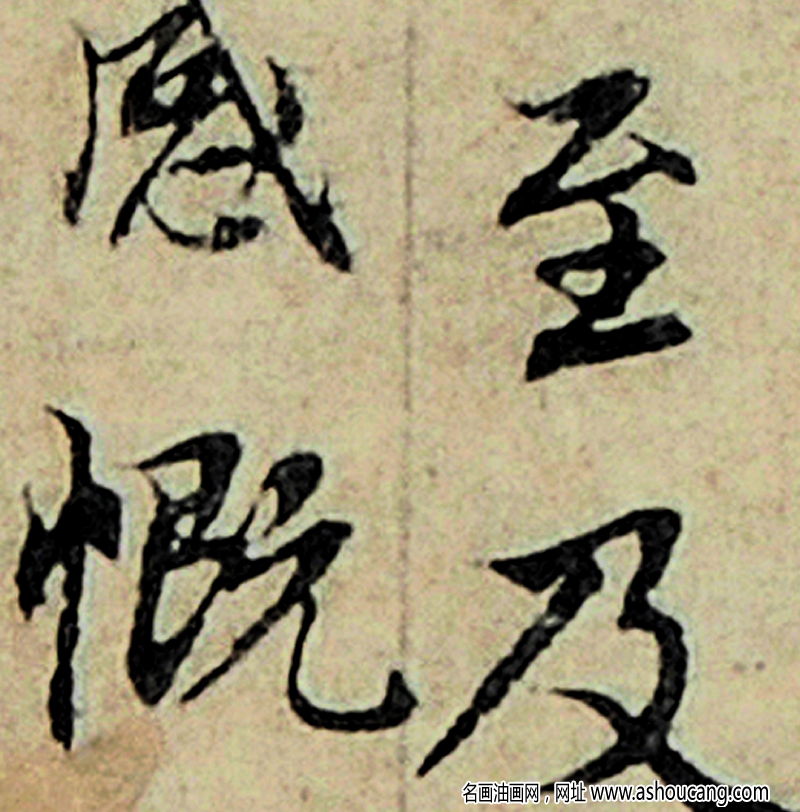 至及
感慨
名画油画网，网址 www.ashoucang.com